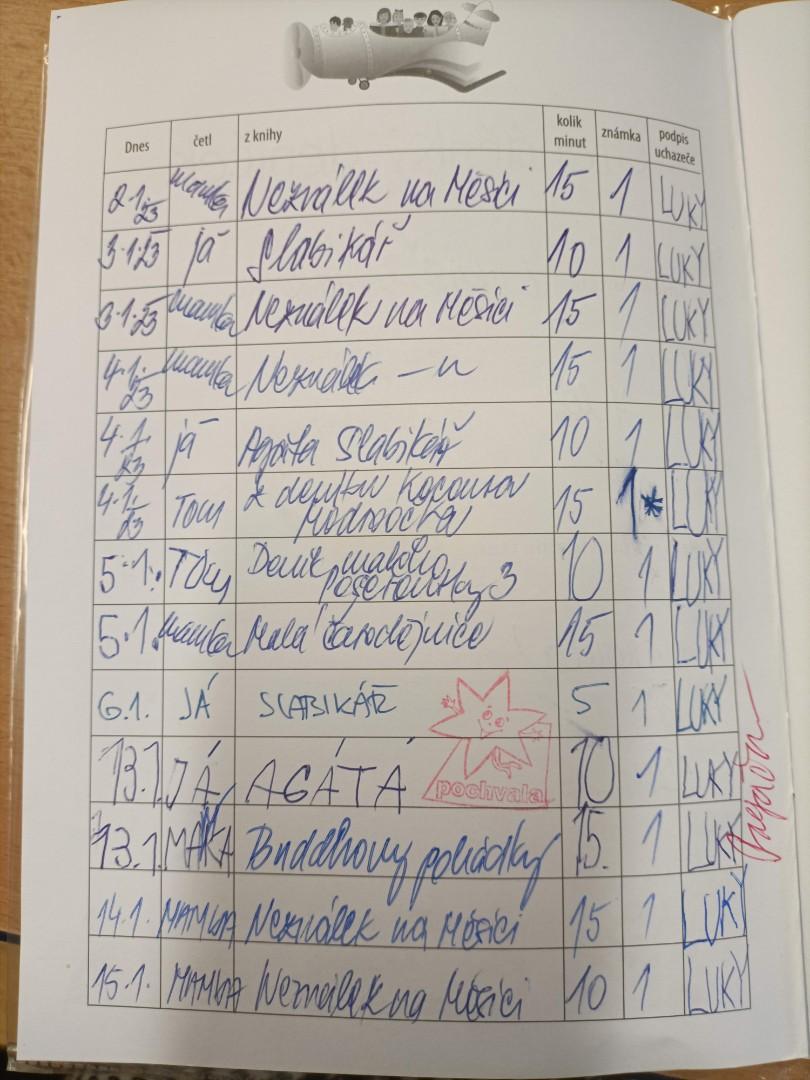 Dnes četl z knihy kolik minut známka podpis uchazeče
2.1.23 mamka Neználek na Měsíci 15 1 LUKY
3.1.23 já Slabikář 10 1 LUKY
3.1.23 mamka Neználek na Měsíci 15 1 LUKY
4.1.23 mamka Neználek —〃 15 1 LUKY
4.1.23 já Agáta Slabikář 10 1 LUKY
4.1.23 Tom Z deníku Kocoura
Modroočka 15 1* LUKY
5.1. Tom Deník malého
poseroutky 3 10 1 LUKY
5.1. mamka Malá čarodějnice 15 1 LUKY
6.1. JÁ SLABIKÁŘ 5 1 LUKY
13.1. JÁ AGÁTÁ 10 1 LUKY
pochvala
13.1. MAKA Buddhovy pohádky 15. 1 LUKY
14.1. MAMKA Neználek na Měsíci 15 1 LUKY
15.1. MAMKA Neználek na Měsíci 10 1 LUKY